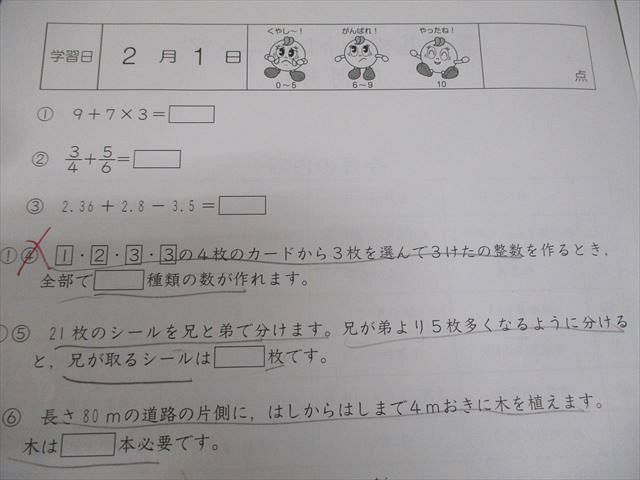 学習日 2月1日 くやし〜! がんばれ! やったね! 点
0〜5 6〜9 10
① 9+7×3=□
② 3/4+5/6=□
③ 2.36+2.8−3.5=□
①④ 1・2・3・3の4枚のカードから3枚を選んで3けたの整数を作るとき,
全部で□種類の数が作れます。
①⑤ 21枚のシールを兄と弟で分けます。兄が弟より5枚多くなるように分ける
と,兄が取るシールは□枚です。
⑥ 長さ80mの道路の片側に,はしからはしまで4mおきに木を植えます。
木は□本必要です。